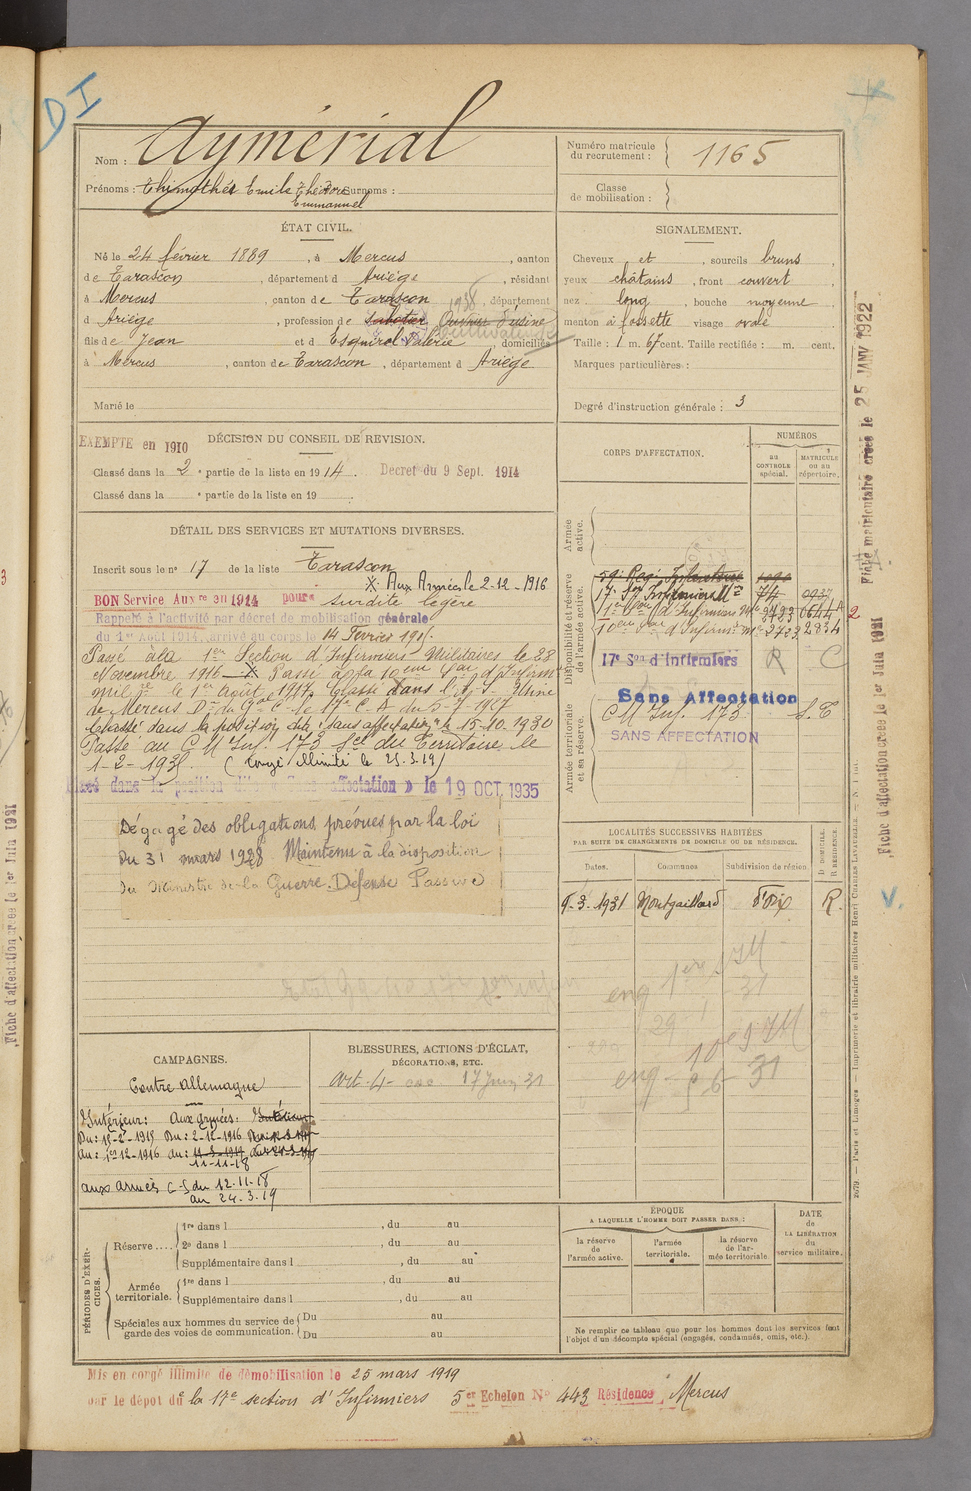 DI
Nom : Aymérial
Prénoms : Thimothée Emile Théodore Surnoms :
Emmanuel
Numéro matricule du recrutement : 1165
Classe de mobilisation :
ÉTAT CIVIL.
Né le 24 février 1889, à Mercus, canton
de Tarascon, département d Ariège, résidant
à Mercus, canton de Tarascon, département
d Ariège, profession de Sabotier Ouvrier d'usine
Cultivateur
fils de Jean et d Esquirol Valérie, domiciliés
à Mercus, canton de Tarascon, département d Ariège
Marié le
SIGNALEMENT.
Cheveux et, sourcils bruns,
yeux châtains, front couvert,
nez long, bouche moyenne
menton à fossette visage ovale
Taille : 1 m. 67 cent. Taille rectifiée : m. cent.
Marques particulières :
Degré d'instruction générale : 3
EXEMPTÉ en 1910
DÉCISION DU CONSEIL DE REVISION.
Classé dans la 2e partie de la liste en 1914. Decret du 9 Sept. 1914
Classé dans la e partie de la liste en 19
DÉTAIL DES SERVICES ET MUTATIONS DIVERSES.
Inscrit sous le no 17 de la liste Tarascon
X. Aux Armées le 2-12-1916
BON Service Auxre en 1914 pour surdité légère
Rappelé à l'activité par décret de mobilisation générale
du 1er Août 1914, arrivé au corps le 14 Février 191
Passé à la 1ere Section d'Infirmiers Militaires le 28
Novembre 1916 X Passé à la 10eme Son d'Infirm
milres le 1er Août 1917. Classé dans l'A.S. Usine
de Mercus Don du Gal C. le 17e C.A. du 5-7-1927
Classé dans la position dite "sans affectation" le 15-10-1930
Passé au C M Inf. 173 Sct du Territoire le
1-2-193 (Congé illimité le 25.3.19)
Classé dans la position dite « Sans affectation » le 19 OCT. 1935
Dégagé des obligations prévues par la loi
du 31 mars 1928 Maintenu à la disposition
du Ministre de la Guerre. Défense Passive
CORPS D'AFFECTATION.
NUMÉROS
au CONTROLE spécial.
MATRICULE ou au répertoire.
Armée active.
Disponibilité et réserve de l'armée active.
59e Regt Infanterie
17e Son Infirmiers Mres 74 0937
1ere Son d'Infirmiers Mres 2723 0644
10eme Son d'Infirmrs Mres 2723 2834
17e Son d'Infirmiers R C
Sans Affectation
Armée territoriale et sa réserve.
C M Inf. 173 S.T
SANS AFFECTATION
LOCALITÉS SUCCESSIVES HABITÉES
PAR SUITE DE CHANGEMENTS DE DOMICILE OU DE RÉSIDENCE.
Dates. Communes Subdivision de région. D DOMICILE. R RÉSIDENCE.
9-3-1931 Montgaillard d'Foix R.
eng 1ere SIM
29-1-31
10e SIM
eng 5-6-31
CAMPAGNES.
Contre Allemagne
Intérieur : Aux Armées : Intérieur
Du : 15-2-1915 Du : 2-12-1916
Au : 1er 12-1916 au :
11-11-18
aux armées C-S du 12.11.18
au 24.3.19
BLESSURES, ACTIONS D'ÉCLAT,
DÉCORATIONS, ETC.
Art. 4 - 17 Juin 31
PÉRIODES D'EXERCICES.
Réserve.... 1re dans l , du au
2e dans l , du au
Supplémentaire dans l , du au
Armée territoriale. 1re dans l , du au
Supplémentaire dans l , du au
Spéciales aux hommes du service de garde des voies de communication. Du au
Du au
ÉPOQUE
A LAQUELLE L'HOMME DOIT PASSER DANS :
la réserve de l'armée active.
l'armée territoriale.
la réserve de l'armée territoriale
DATE de LA LIBÉRATION du service militaire.
Ne remplir ce tableau que pour les hommes dont les services font
l'objet d'un décompte spécial (engagés, condamnés, omis, etc.).
Mis en congé illimité de démobilisation le 25 mars 1919
par le dépôt du la 17e section d'Infirmiers 5er Echelon No 443 Résidence, Mercus
Fiche matriculaire créée le 25 JANV 1922
Fiche d'affectation créée le 1er Juin 1921
2
V.
2679. — Paris et Limoges. — Imprimerie et librairie militaires Henri CHARLES-LAVAUZELLE.
3
Fiche d'affectation créée le 1er Juin 1921